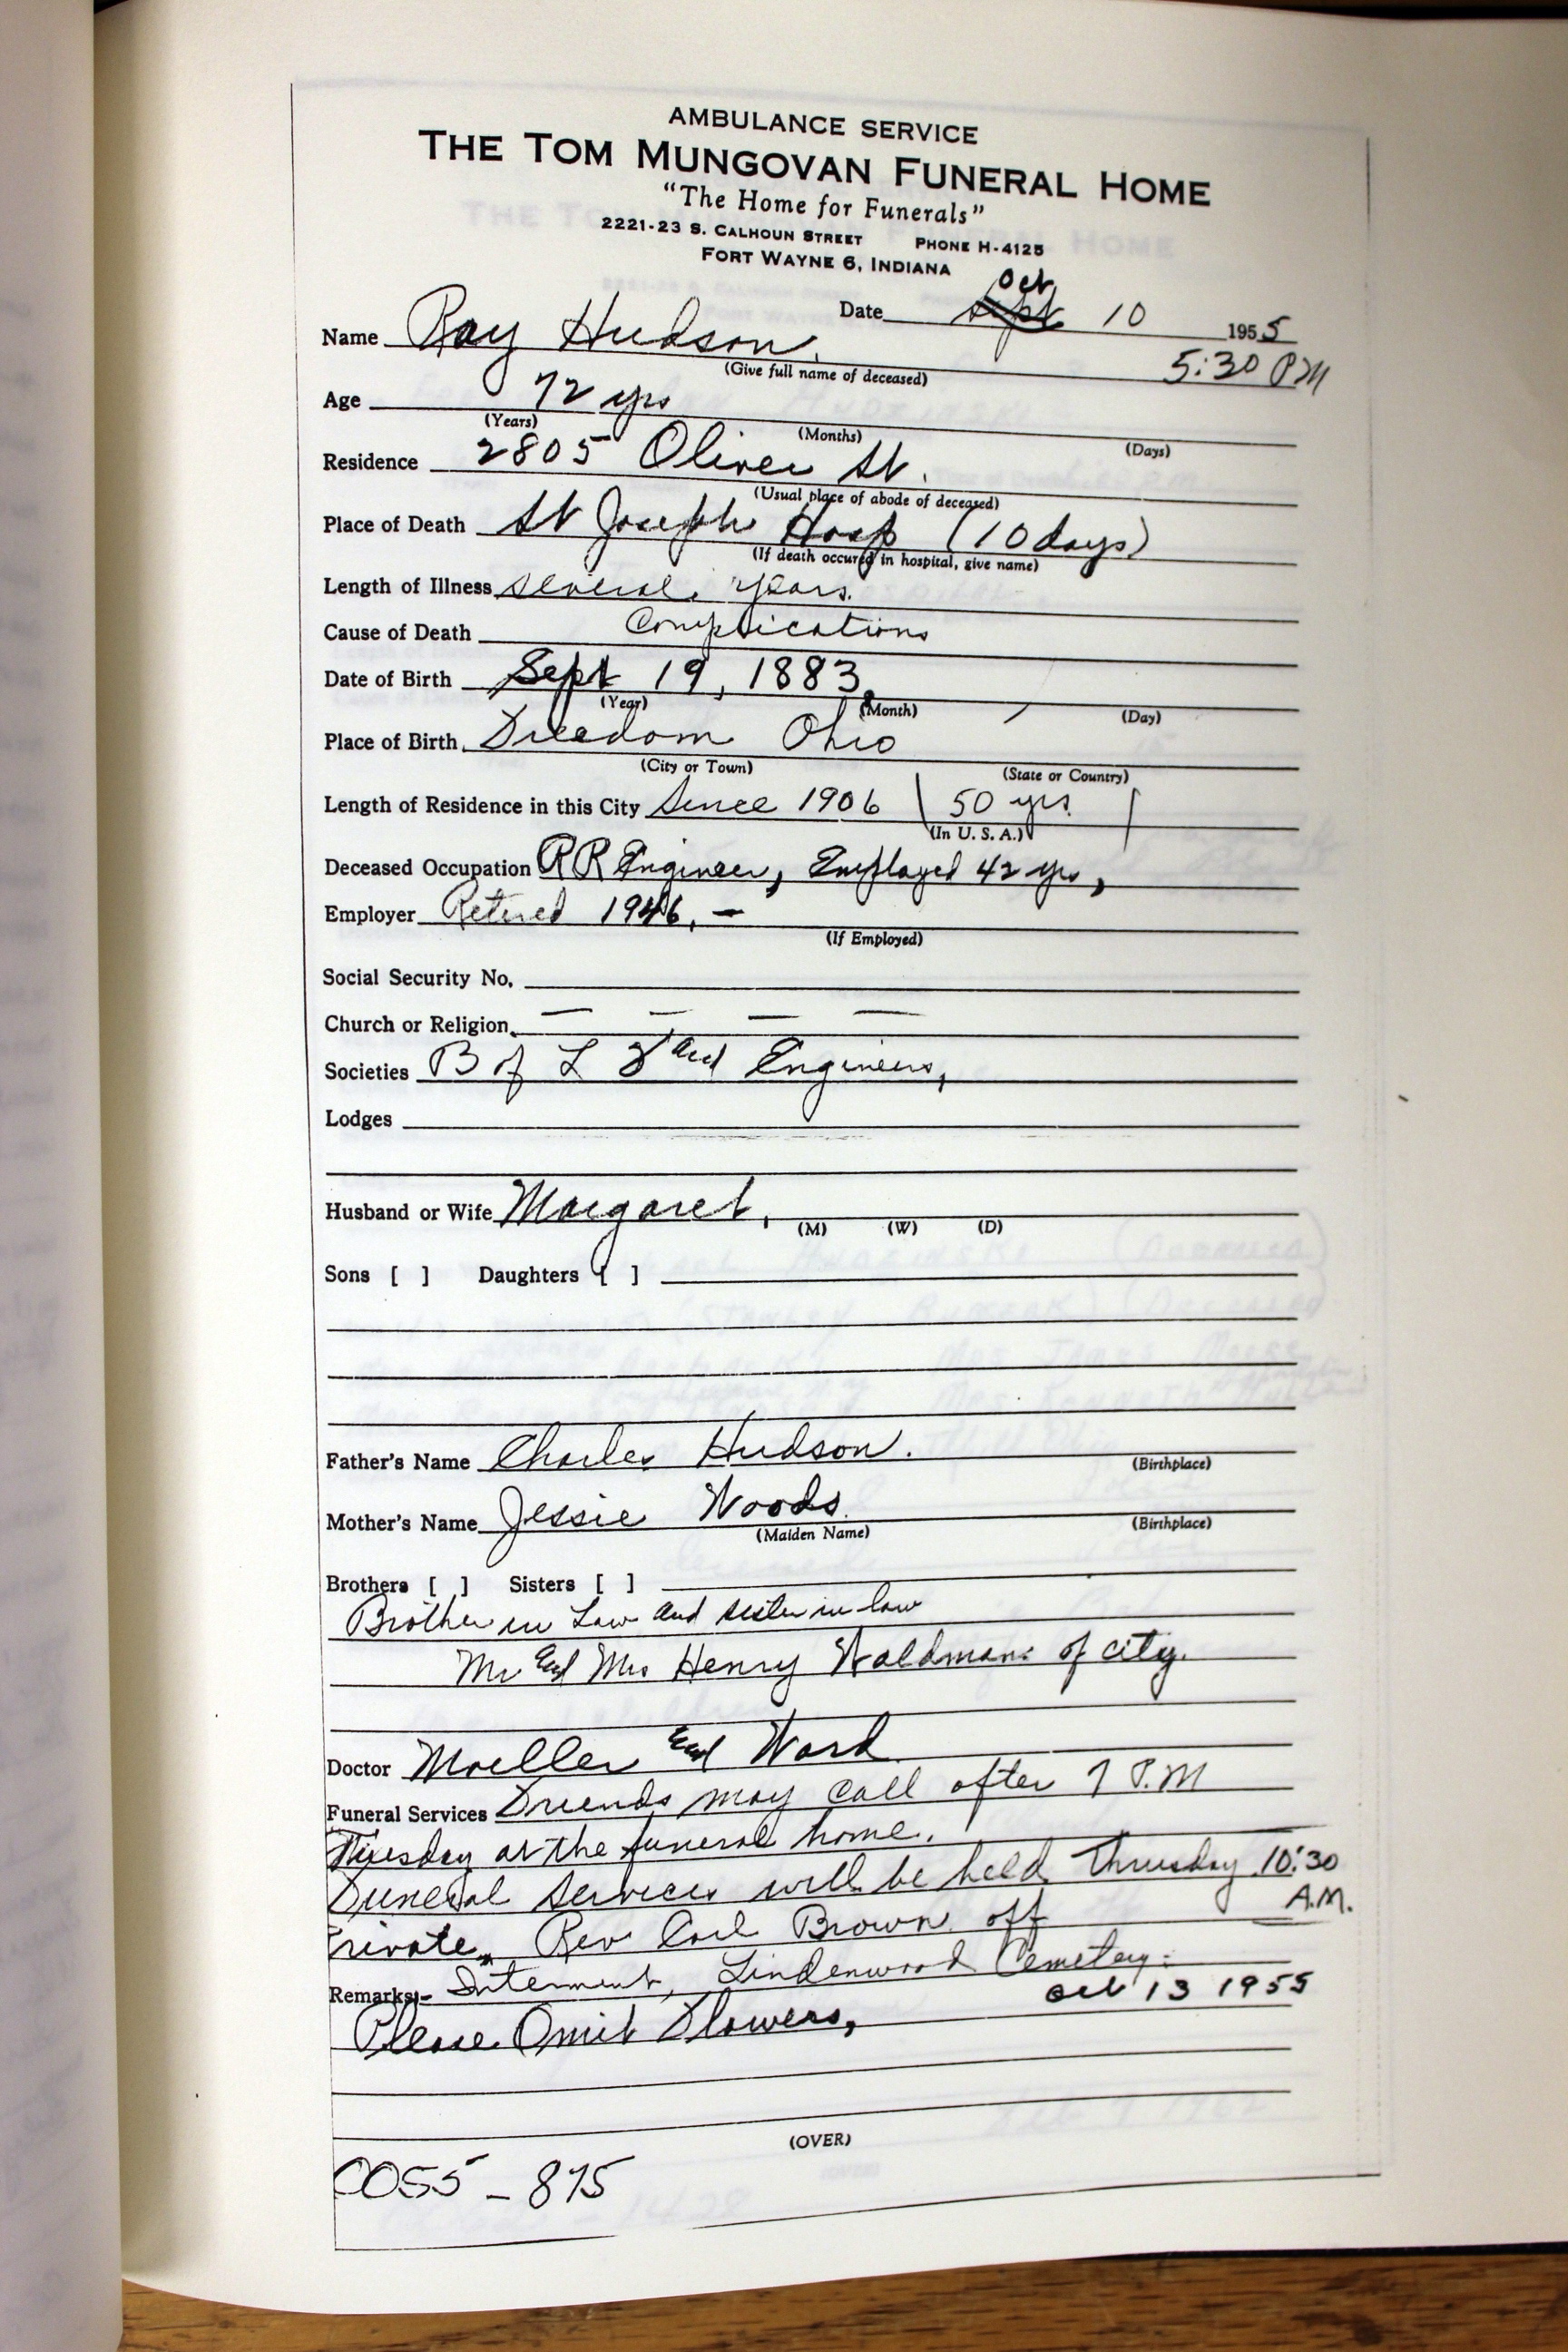 AMBULANCE SERVICE
THE TOM MUNGOVAN FUNERAL HOME
"The Home for Funerals"
2221-23 S. CALHOUN STREET PHONE H-4125
FORT WAYNE 6, INDIANA
Oct
Date Sept 10 1955
Name Ray Hudson. 5:30 PM
(Give full name of deceased)
Age 72 yrs
(Years) (Months) (Days)
Residence 2805 Oliver St.
(Usual place of abode of deceased)
Place of Death St Joseph Hosp (10 days)
(If death occured in hospital, give name)
Length of Illness several years.
Cause of Death Complications
Date of Birth Sept 19, 1883
(Year) (Month) (Day)
Place of Birth Freedom Ohio
(City or Town) (State or Country)
Length of Residence in this City Since 1906 (50 yrs.)
(In U. S. A.)
Deceased Occupation RR Engineer, Employed 42 yrs,
Employer Retired 1946, —
(If Employed)
Social Security No.
Church or Religion — — — —
Societies B of L F and Engineers,
Lodges
Husband or Wife Margaret,
(M) (W) (D)
Sons [ ] Daughters [ ]
Father's Name Charles Hudson.
(Birthplace)
Mother's Name Jessie Woods.
(Maiden Name) (Birthplace)
Brothers [ ] Sisters [ ]
Brother in Law and sister in law
Mr and Mrs Henry Waldman: of city.
Doctor Moeller and Ward
Funeral Services Friends may call after 7 P.M
Tuesday at the funeral home.
Funeral services will be held Thursday 10:30
A.M.
Private. Rev Carl Brown off
Remarks:- Interment, Lindenwood Cemetery:
Oct 13 1955
Please Omit Flowers,
(OVER)
0055 - 875